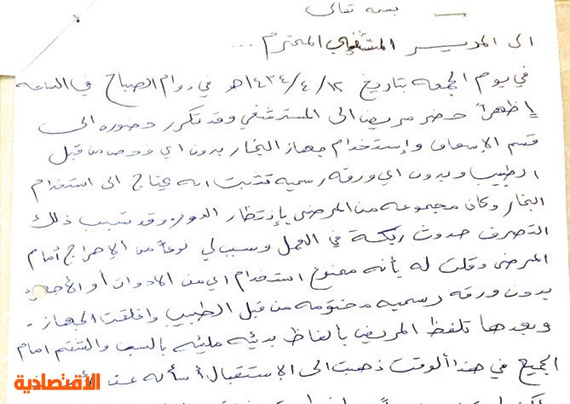 بسمه تعالى
الى المدير المشفي المحترم ...
في يوم الجمعه بتاريخ ١٤٣٤/٤/١٢هـ في دوام الصباح في الساعه
١ ظهراً حضر مريض الى المستشفى وقد تكرر حضوره الى
قسم الإسعاف وإستخدام جهاز البخار بدون اي فحص من قبل
الطبيب وبدون اي ورقه رسميه تثبت انه يحتاج الى استخدام
البخار وكان مجموعه من المرضى بإنتظار الدور وقد تسبب ذلك
التصرف حدوث ربكة في العمل وسبب لي نوعاً من الاحراج أمام
المرضى وقلت له بأنه ممنوع استخدام اي من الادوات أو الأجهزه
بدون ورقه رسميه مختومه من قبل الطبيب واغلقت الجهاز .
وبعدها تلفظ المريض بألفاظ بذيئه مليئه بالسب والشتم امام
الجميع في هذا ألوقت ذهبت الى الاستقبال أسأله عن
الاقتصادية